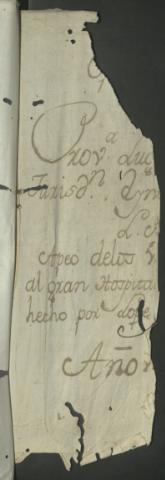 Prov.a Lu
Jurisdn.
Apeo delos
al gran Hospita
hecho por Lope
Año